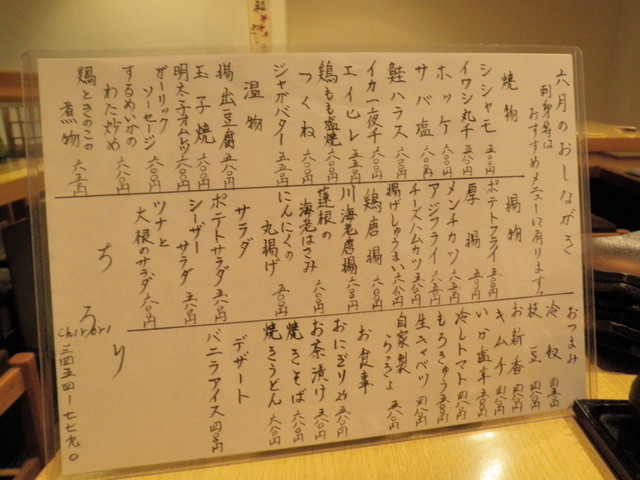 六月のおしながき
刺身等は
おすすめメニューに有ります。
焼物
シシャモ 五〇〇円
イワシ丸干 五〇〇円
ホッケ 六〇〇円
サバ塩 六〇〇円
鮭ハラス 六〇〇円
イカ一夜干 六〇〇円
エイヒレ 五五〇円
鶏もも塩焼 六〇〇円
つくね 六〇〇円
ジャガバター 五五〇円
温物
揚出豆腐 五八〇円
玉子焼 六〇〇円
明太子オムレツ
ガーリック
ソーセージ 六〇〇円
するめいかの
わた炒め 六八〇円
鶏ときのこの
煮物 六五〇円
揚物
ポテトフライ 五〇〇円
厚揚 五〇〇円
メンチカツ 六五〇円
アジフライ 六五〇円
チーズハムカツ 五八〇円
揚げしゅうまい 六八〇円
鶏唐揚 六八〇円
川海老唐揚 六八〇円
蓮根の
海老はさみ 六八〇円
にんにくの
丸揚げ 五〇〇円
サラダ
ポテトサラダ 五八〇円
シーザー
サラダ 五八〇円
ツナと
大根のサラダ 六八〇円
おつまみ
冷奴 四五〇円
枝豆 四八〇円
お新香 四八〇円
キムチ 四八〇円
いか塩辛 五〇〇円
冷しトマト 四八〇円
もろきゅう 五〇〇円
生キャベツ 四八〇円
自家製
らっきょ 五八〇円
お食事
おにぎり 2ケ 五〇〇円
お茶漬け 五八〇円
焼きそば 六八〇円
焼きうどん 六八〇円
デザート
バニラアイス 四〇〇円
ちろり
Chirori
三四五四-七七九〇